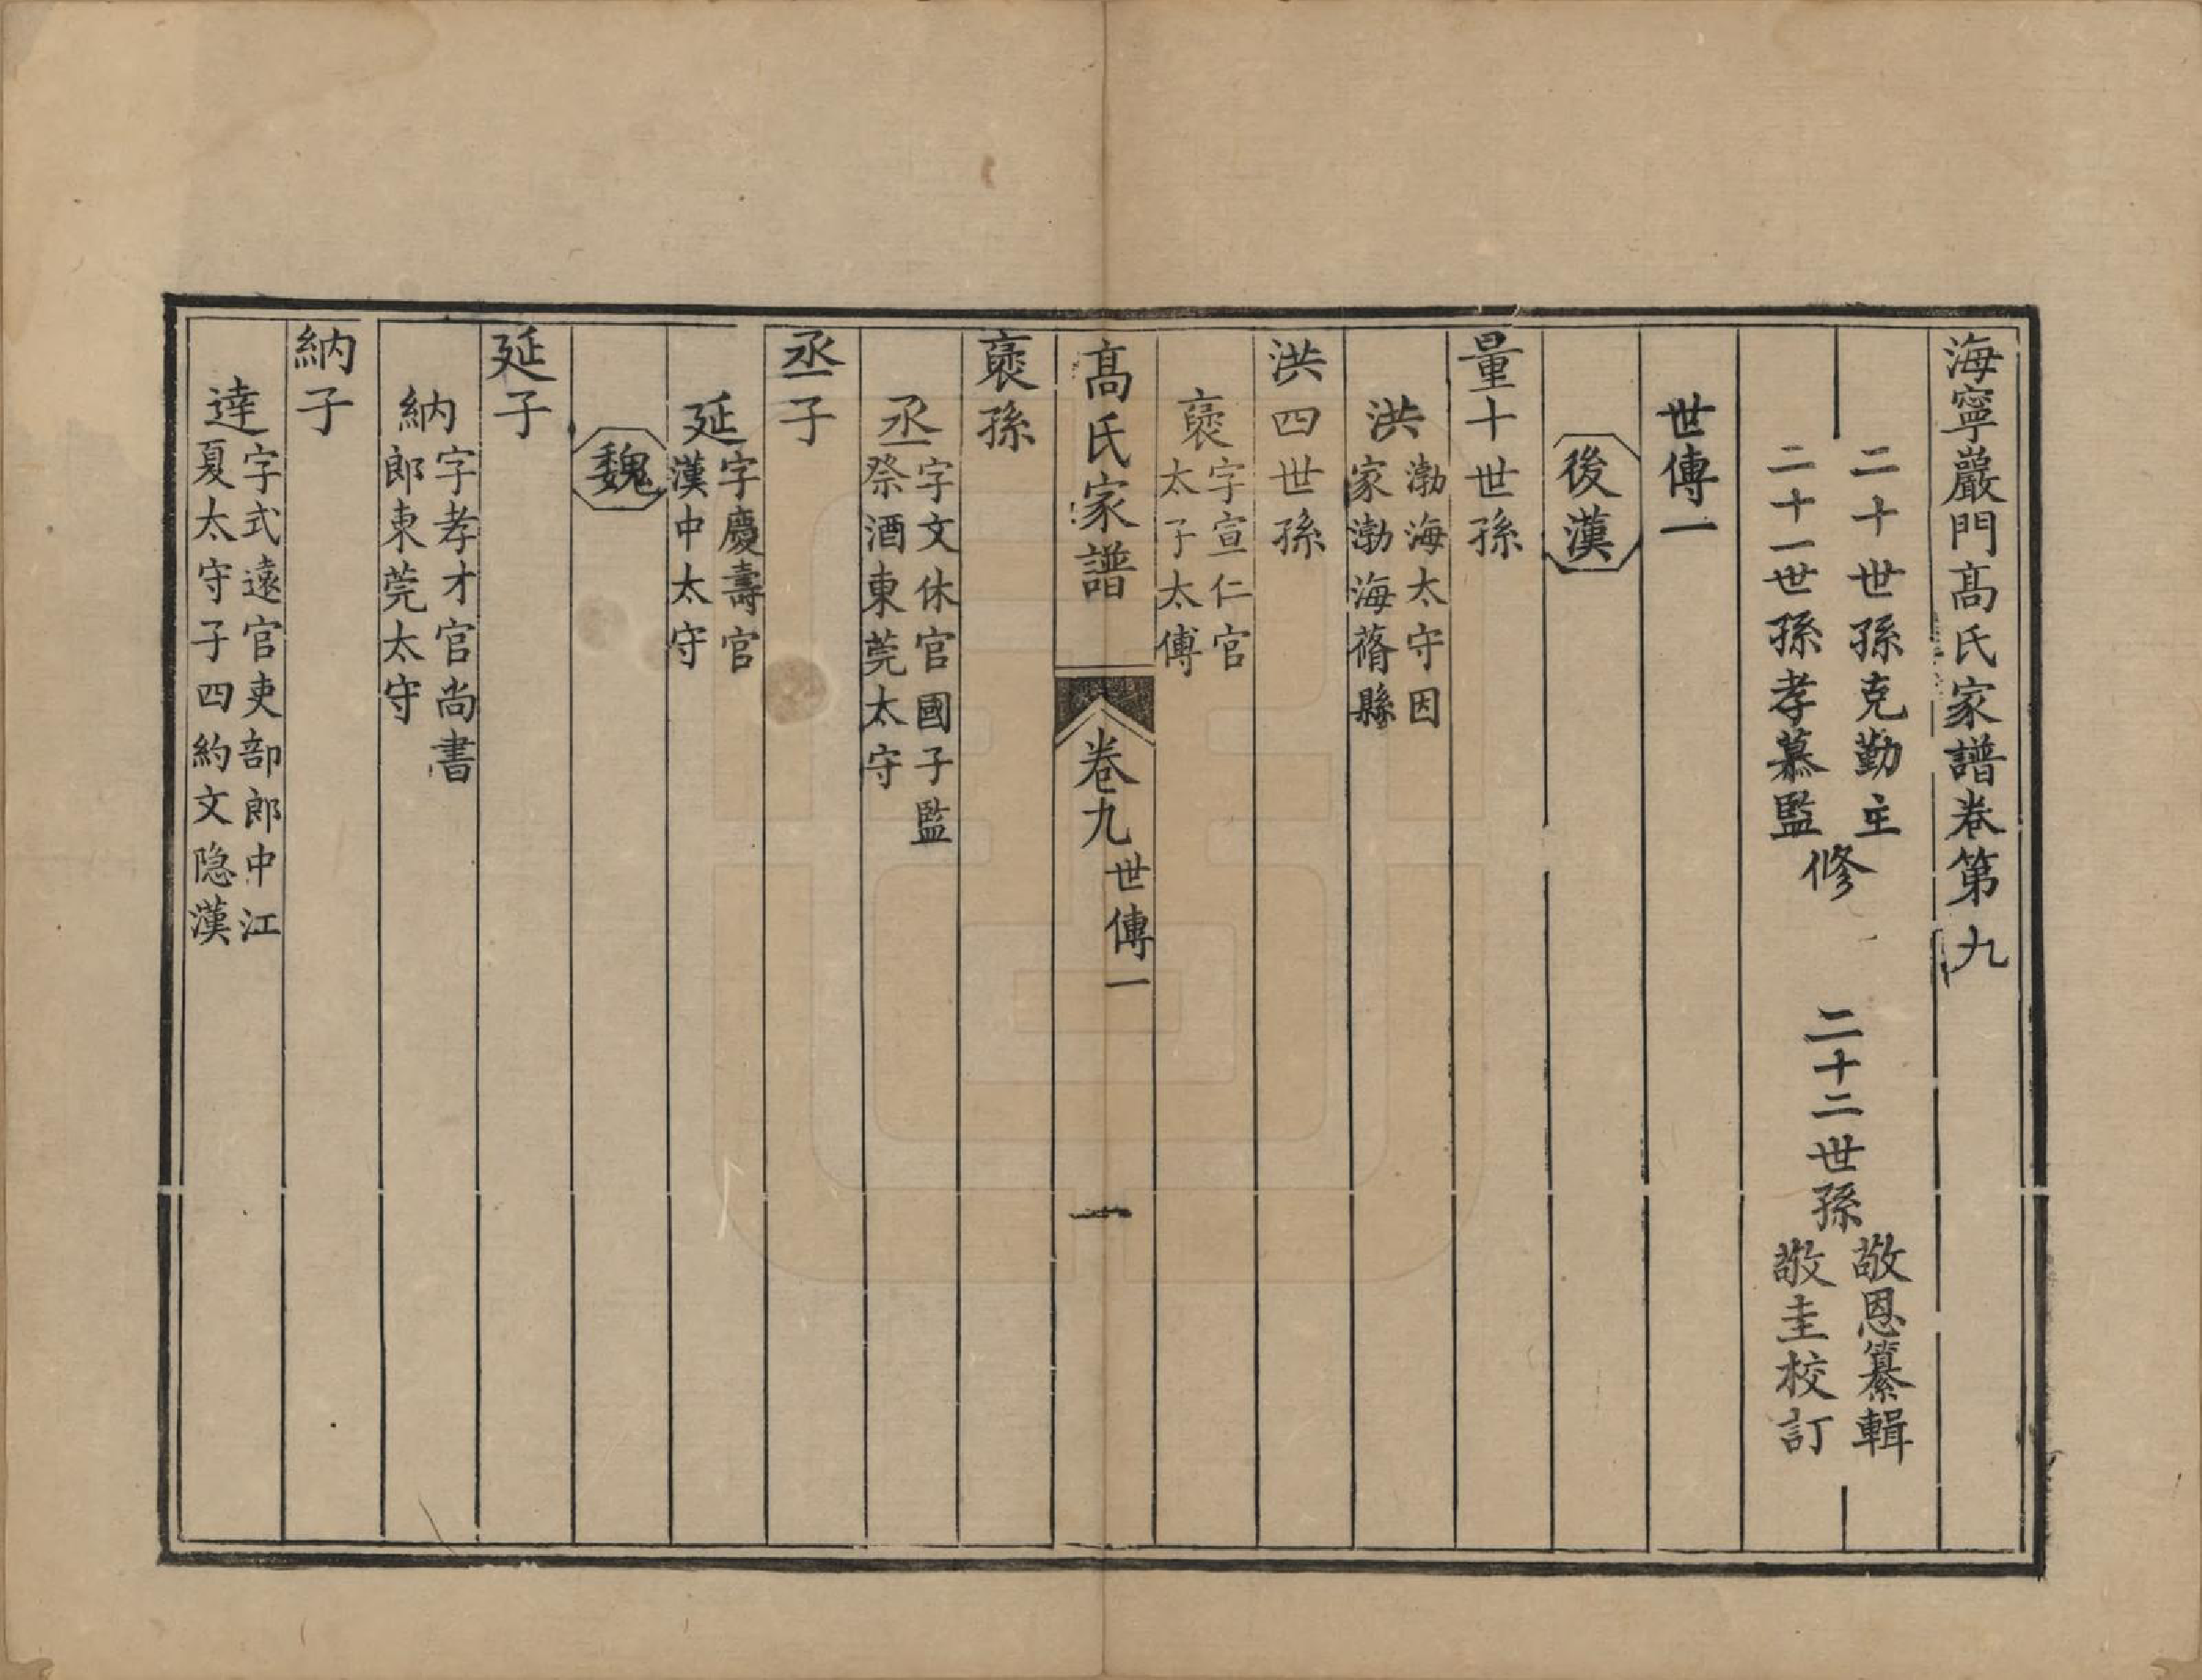 海寧巖門高氏家譜卷第九
二十世孫克勤主
二十一世孫孝慕監
修
二十二世孫
敬恩纂輯
敬圭校訂
世傳一
後漢
量十世孫
洪
渤海太守因
家渤海蓨縣
洪四世孫
褒
字宣仁官
太子太傅
高氏家譜
卷九
世傳一
一
褒孫
丞
字文休官國子監
祭酒東莞太守
丞子
延
字慶壽官
漢中太守
魏
延子
納
字孝才官尚書
郎東莞太守
納子
達
字式遠官吏部郎中江
夏太守子四約文隐漢